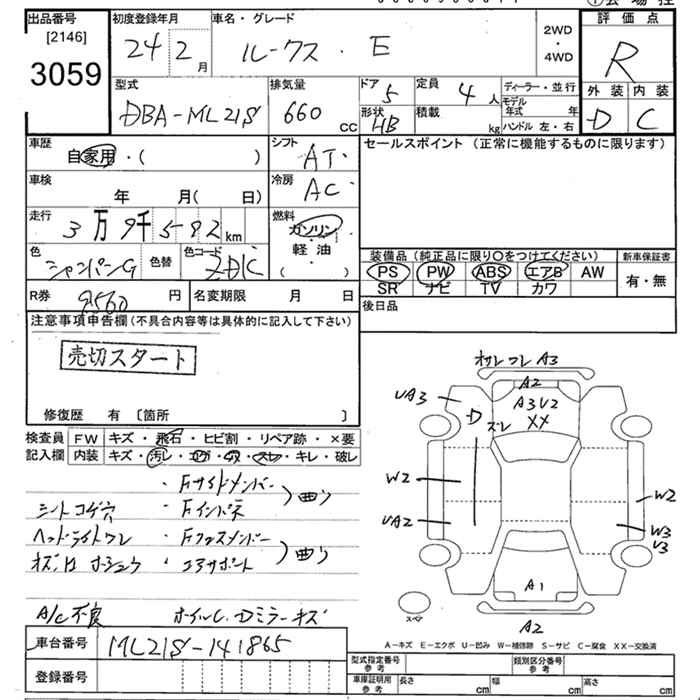 出品番号
[2146]
3059
初度登録年月
24 2 月
車名・グレード
ルークス・E
2WD
・
4WD
評価点
R
外装 内装
D C
型式
DBA-ML21S
排気量
660 cc
ドア 5
形状 HB
定員 4 人
積載 kg
ディーラー・並行
モデル年式 年
ハンドル 左・右
車歴
自家用・( )
シフト
AT
セールスポイント (正常に機能するものに限ります)
車検
年 月( 日)
冷房
AC
走行
3万9千582 km
燃料
ガソリン
軽油
( )
色
シャンパンG
色替
色コード
ZDK
装備品 (純正品に限り○をつけてください)
PS PW ABS エアB AW
SR ナビ TV カワ
新車保証書
有・無
R券
9560 円
名変期限 月 日
後日品
注意事項申告欄(不具合内容等は具体的に記入して下さい)
売切スタート
修復歴 有 〔箇所 〕
検査員
記入欄
FW キズ・飛石・ヒビ割・リペア跡・×要
内装 キズ・汚レ・コゲ・穴・スレ・キレ・破レ
・Fサイドメンバー
シートコゲ穴 ・Fインパネ
曲り
ヘッドライトワレ ・Fクロスメンバー
・コアサポート
曲り
A/C不良 ホイルC、Dミラーキズ
車台番号
ML21S-141865
登録番号
オサレ ワレ A3
A2
UA3
A3 U2
XX
D
ズレ
W2
W2
UA2
W3
U3
A1
スペア
A2
A-キズ E-エクボ U-凹み W-補修跡 S-サビ C-腐食 XX-交換済
型式指定番号 参考
類別区分番号 参考
車庫証明用 参考
長さ cm
幅 cm
高さ cm